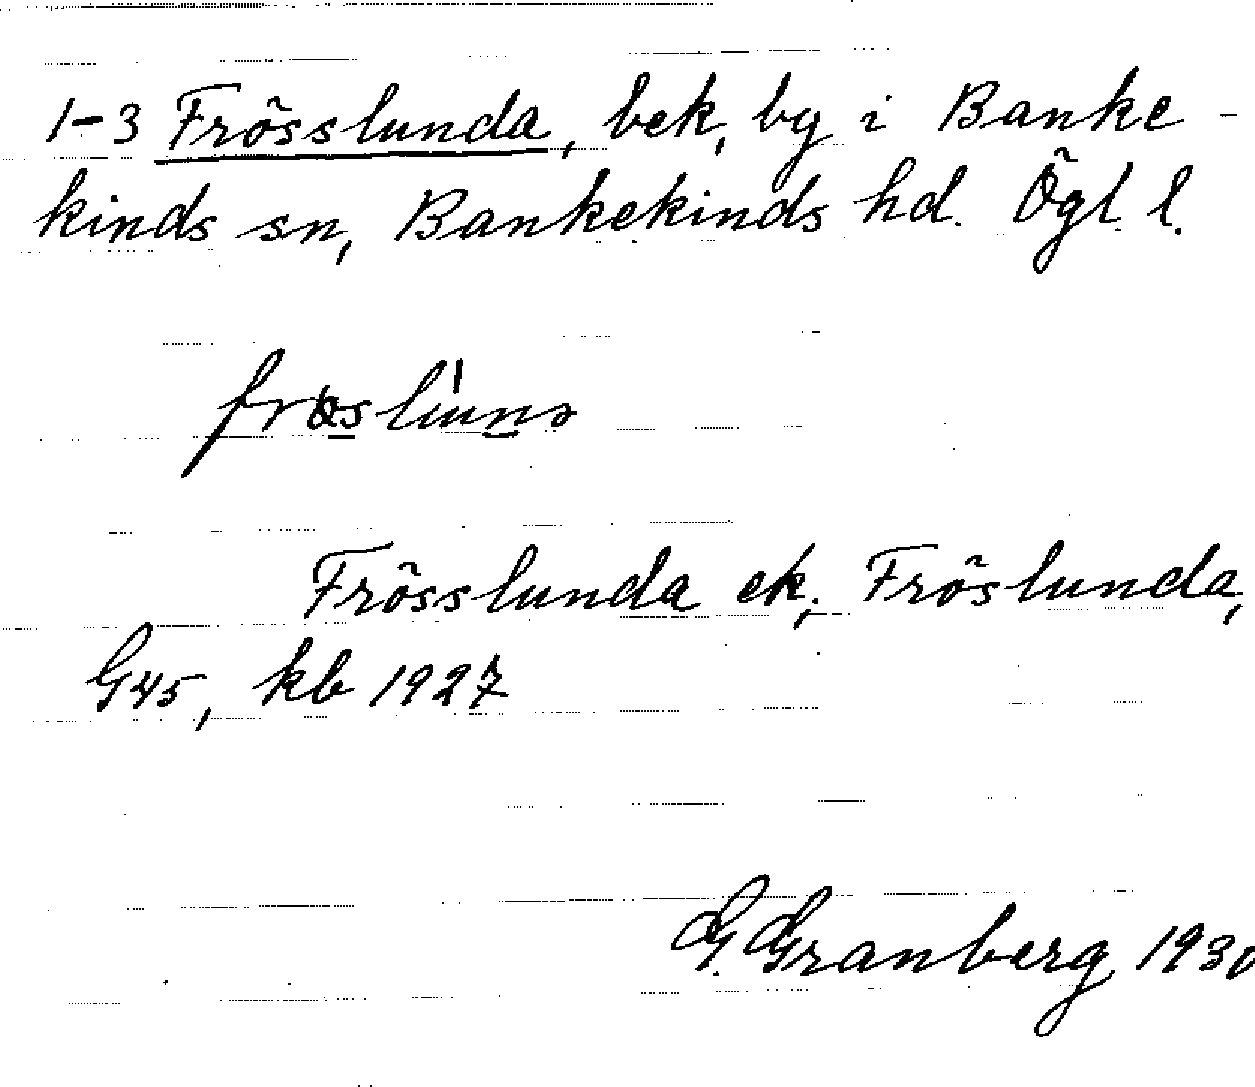 1-3 Frösslunda, bek, by i Banke-
kinds sn, Bankekinds hd. Ögl. l.
Frösslunda ek; Fröslunda,
G45, kb 1927
G. Granberg 1930